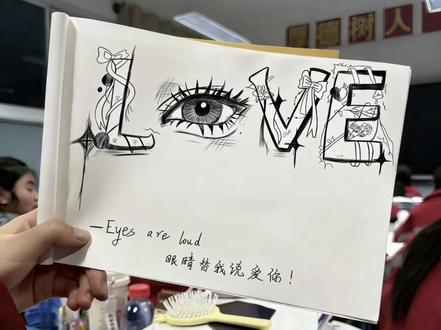 树人
LOVE
—Eyes are loud
眼睛替我说爱你！